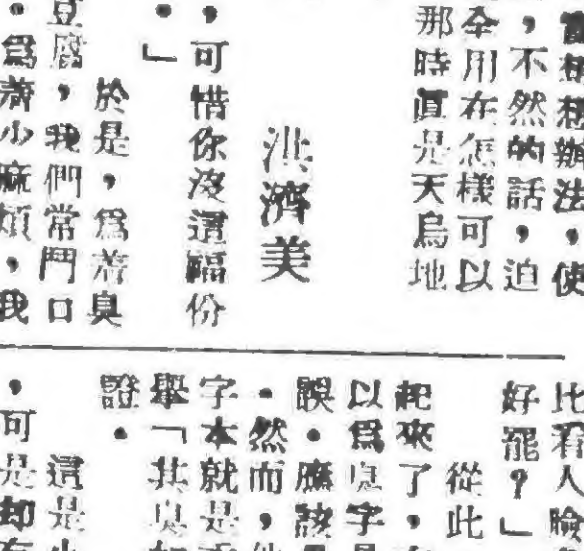 會想想辦法，使
，不然的話，迫
全用在怎樣可以
那時真是天烏地
洪濟美
，可惜你沒這福份
。」
於是，爲着臭
豆腐，我們常門口
。爲着少麻煩，我
比看人臉
好罷？」
從此
起來了，
以爲臭字是
誤。應該是
。然而，他
字本就是
舉「其臭如
證。
這是小
，可是却有